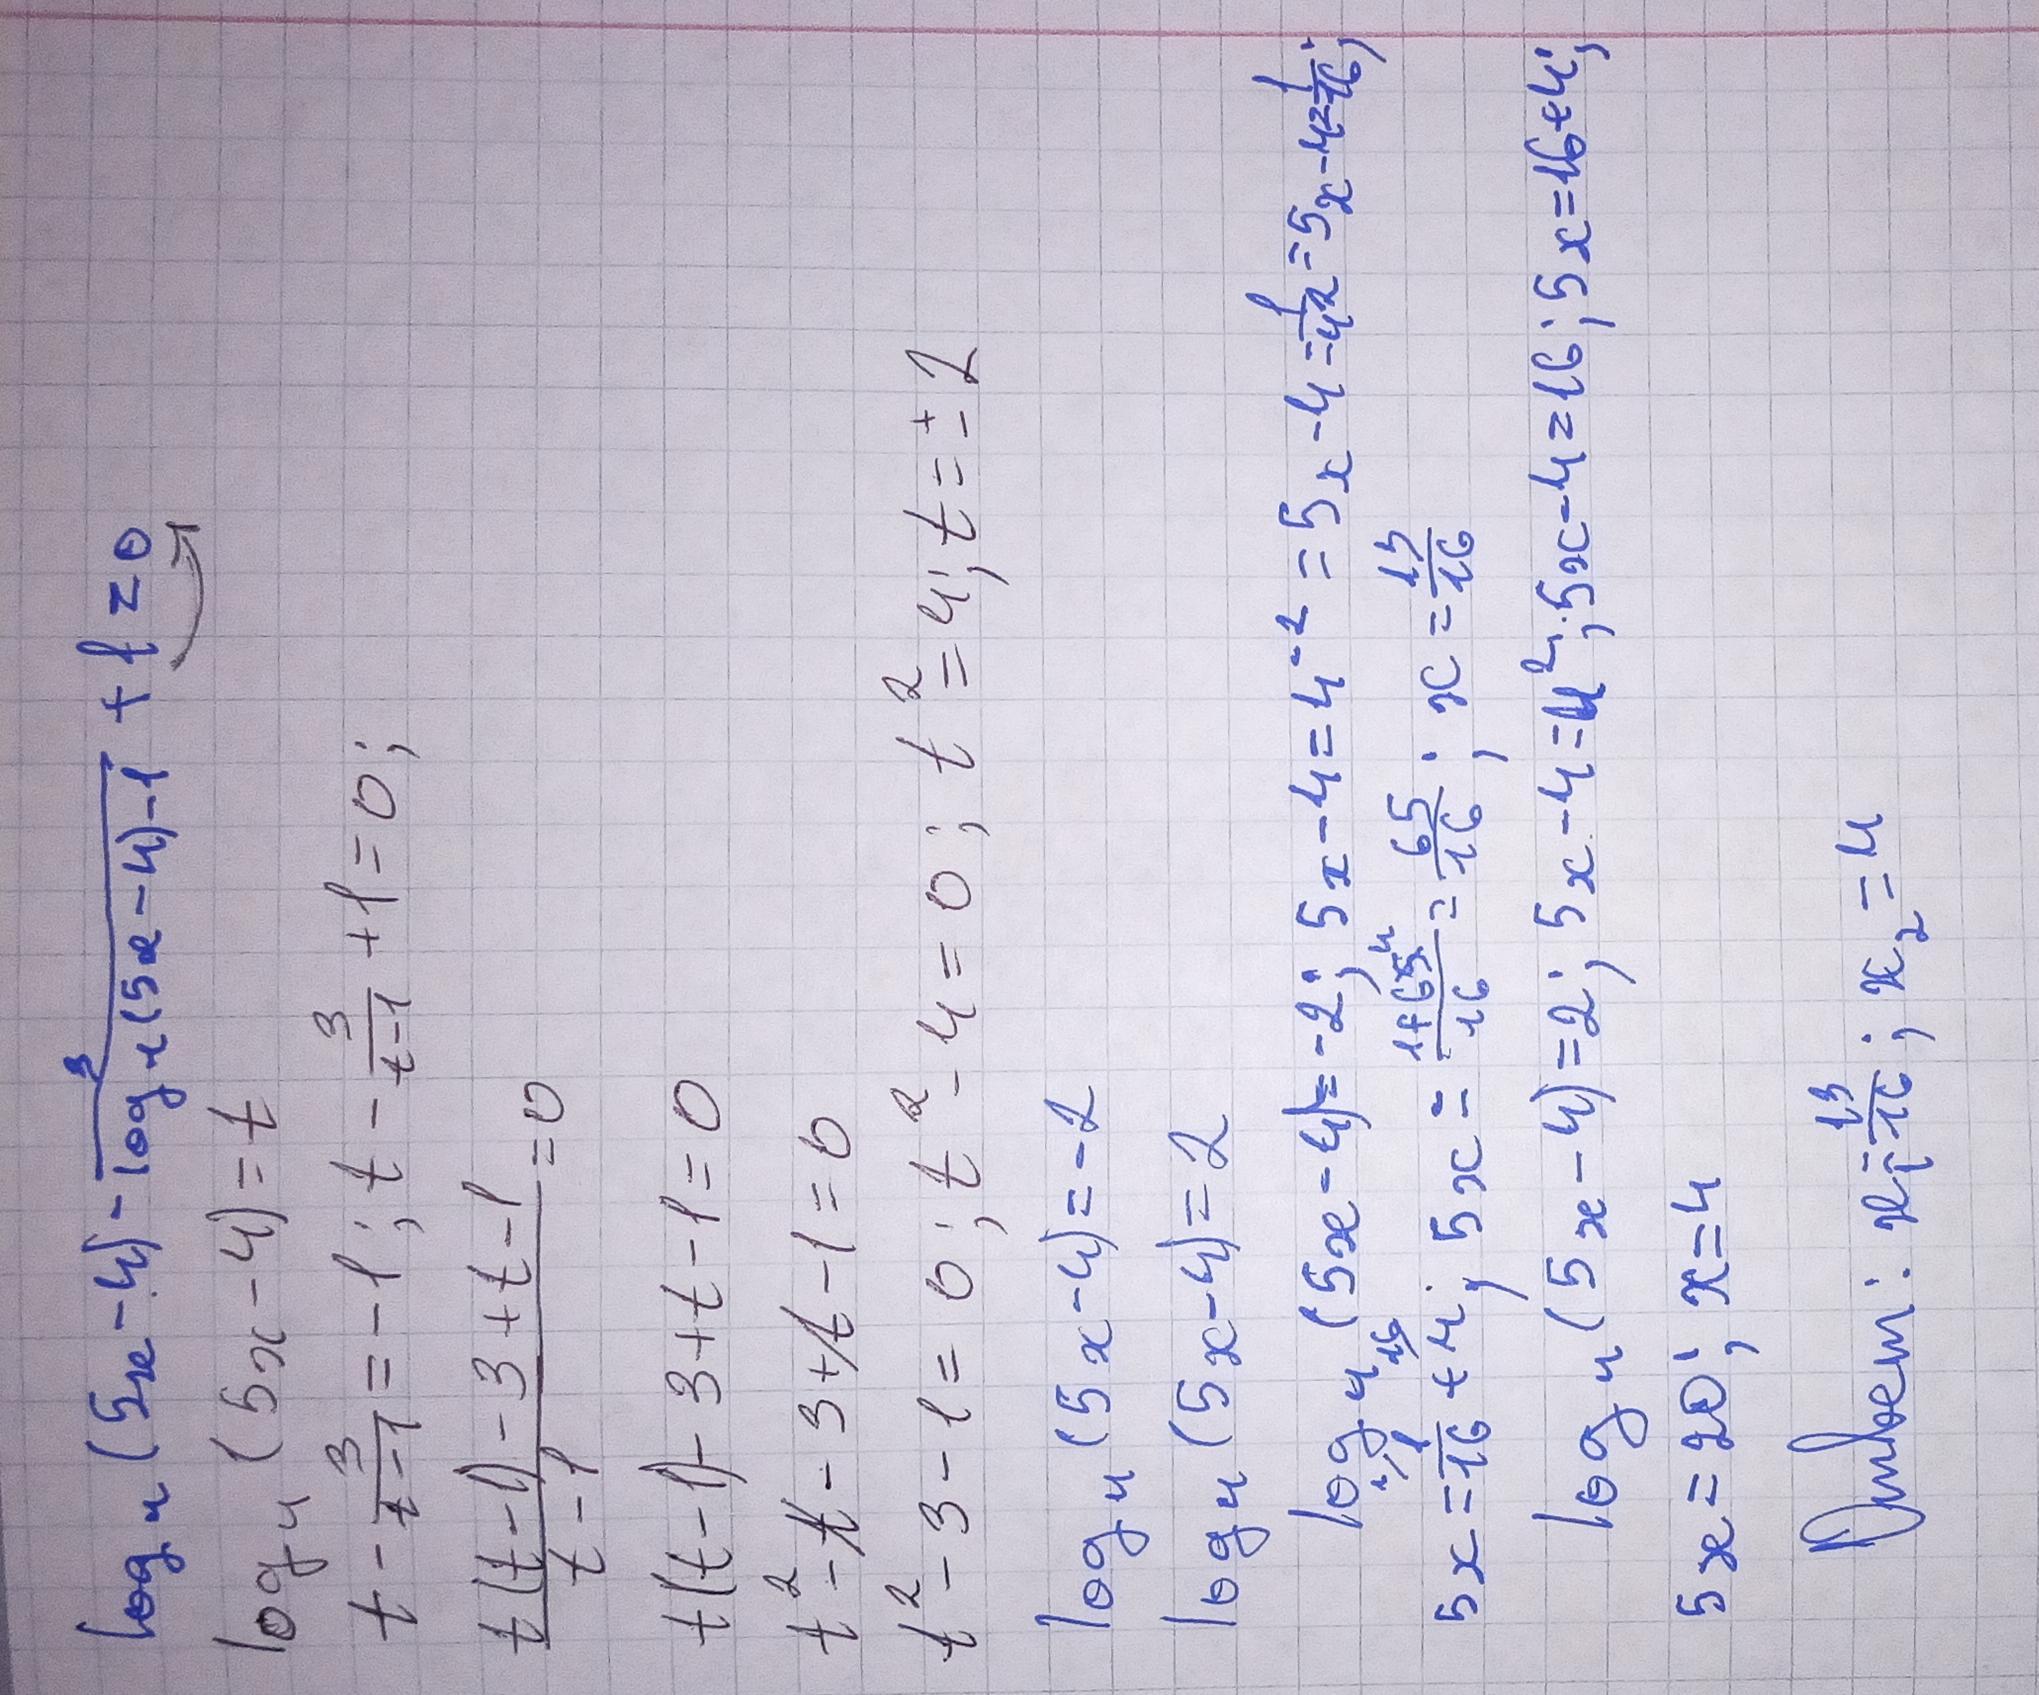 log₄(5x-4) - 3/(log₄(5x-4)-1) + 1 = 0
log₄(5x-4)=t
t - 3/(t-1) = -1; t - 3/(t-1) + 1 = 0;
(t(t-1)-3+t-1)/(t-1) = 0
t(t-1)-3+t-1=0
t²-t-3+t-1=0
t²-3-1=0; t²-4=0; t²=4; t=±2
log₄(5x-4)=-2
log₄(5x-4)=2
log₄(5x-4)=-2; 5x-4=4⁻²=5x-4=1/4²=5x-4=1/16;
5x=1/16+4; 5x=(1+64)/16=65/16; x=13/16
log₄(5x-4)=2; 5x-4=4²; 5x-4=16; 5x=16+4;
5x=20; x=4
Ответ: x₁=13/16; x₂=4